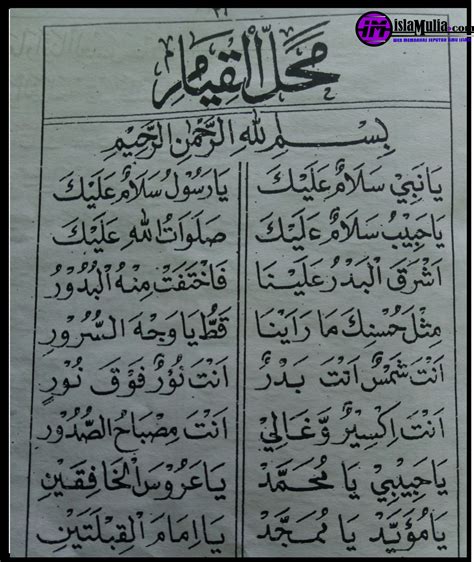 ٣١
islaMulia.com
WEB MEMBAHAS SEPUTAR ILMU ISLAM
محل القيام
بِسْمِ اللهِ الرَّحْمٰنِ الرَّحِيْمِ
يَا نَبِيْ سَلَامٌ عَلَيْكَ يَا رَسُوْلْ سَلَامٌ عَلَيْكَ
يَا حَبِيْبْ سَلَامٌ عَلَيْكَ صَلَوَاتُ اللهِ عَلَيْكَ
اَشْرَقَ الْبَدْرُ عَلَيْنَا فَاخْتَفَتْ مِنْهُ الْبُدُوْرُ
مِثْلَ حُسْنِكَ مَا رَاَيْنَا قَطُّ يَا وَجْهَ السُّرُوْرِ
اَنْتَ شَمْسٌ اَنْتَ بَدْرٌ اَنْتَ نُوْرٌ فَوْقَ نُوْرٍ
اَنْتَ اِكْسِيْرٌ وَّغَالِيْ اَنْتَ مِصْبَاحُ الصُّدُوْرِ
يَا حَبِيْبِيْ يَا مُحَمَّدْ يَا عَرُوْسَ الْخَافِقَيْنِ
يَا مُؤَيَّدْ يَا مُمَجَّدْ يَا اِمَامَ الْقِبْلَتَيْنِ